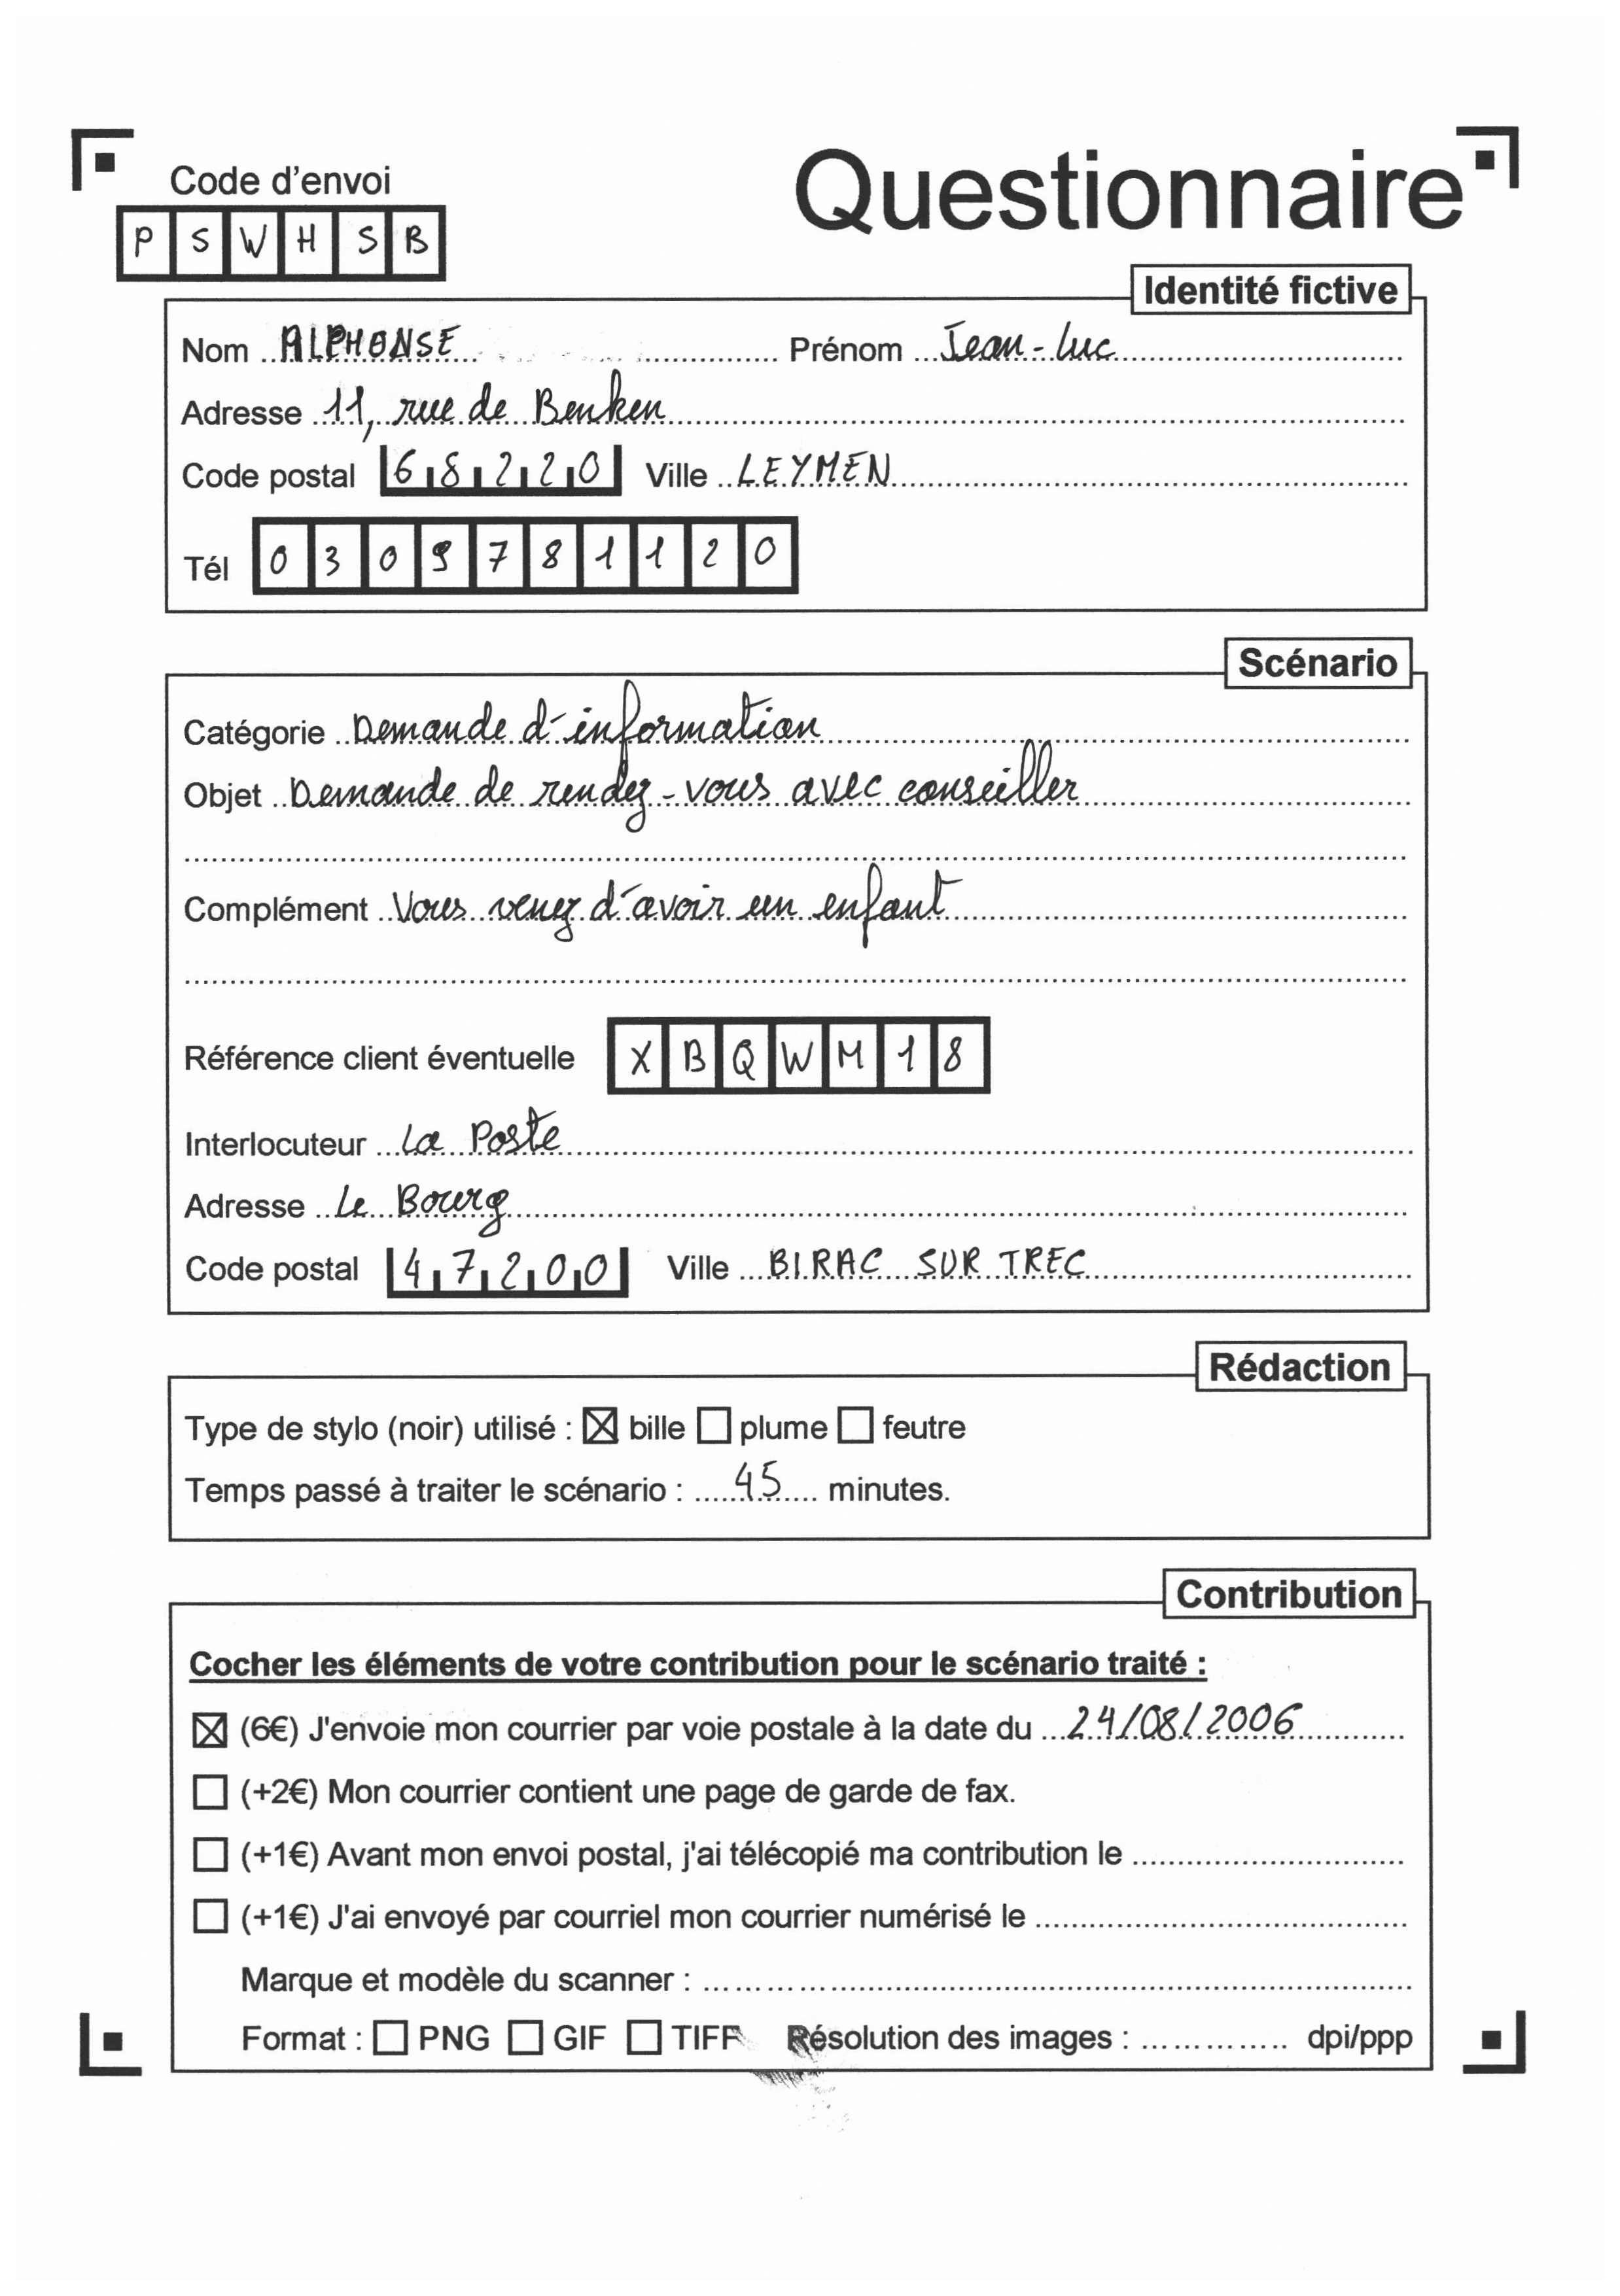 Code d'envoi
Questionnaire
P S W H S B
Identité fictive
Nom ALPHONSE Prénom Jean-Luc
Adresse 11, rue de Benken
Code postal 68220 Ville LEYMEN
Tél 0309781120
Scénario
Catégorie Demande d'information
Objet Demande de rendez-vous avec conseiller
Complément Vous venez d'avoir un enfant
Référence client éventuelle X B Q W M 1 8
Interlocuteur La Poste
Adresse Le Bourg
Code postal 47200 Ville BIRAC SUR TREC
Rédaction
Type de stylo (noir) utilisé : ☒ bille ☐ plume ☐ feutre
Temps passé à traiter le scénario : 45 minutes.
Contribution
Cocher les éléments de votre contribution pour le scénario traité :
☒ (6€) J'envoie mon courrier par voie postale à la date du 24/08/2006
☐ (+2€) Mon courrier contient une page de garde de fax.
☐ (+1€) Avant mon envoi postal, j'ai télécopié ma contribution le
☐ (+1€) J'ai envoyé par courriel mon courrier numérisé le
Marque et modèle du scanner :
Format : ☐ PNG ☐ GIF ☐ TIFF Résolution des images : dpi/ppp